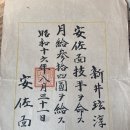 新井 弦淳
安佐面技手ヲ命ス
月給参拾四圓ヲ給ス
昭和十六年八月三十一日
安佐面